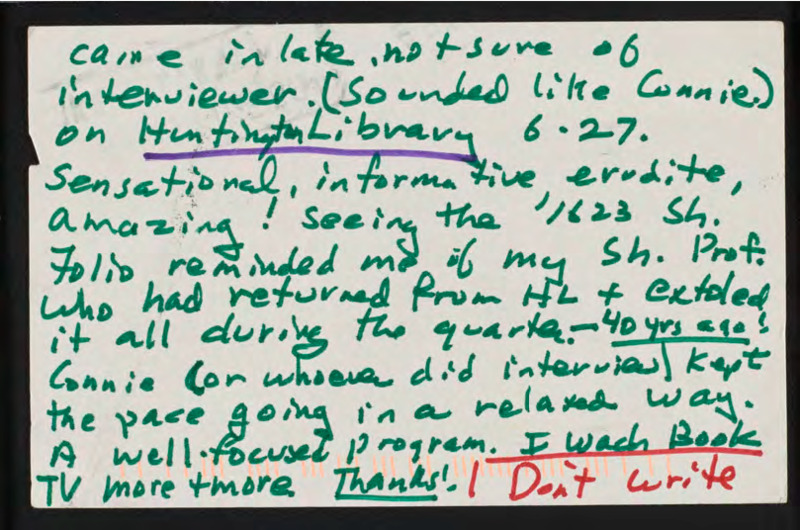 came in late, not sure of
interviewer. (Sounded like Connie.)
on Huntington Library 6.27.
Sensational, informative erudite,
amazing! Seeing the '1623 Sh.
Folio reminded me of my Sh. Prof.
who had returned from HL + extoled
it all during the quarter - 40 yrs ago!
Connie (or whoever did interview) kept
the pace going in a relaxed way.
A well-focused program. I wach Book
TV more + more. Thanks! | Don't write